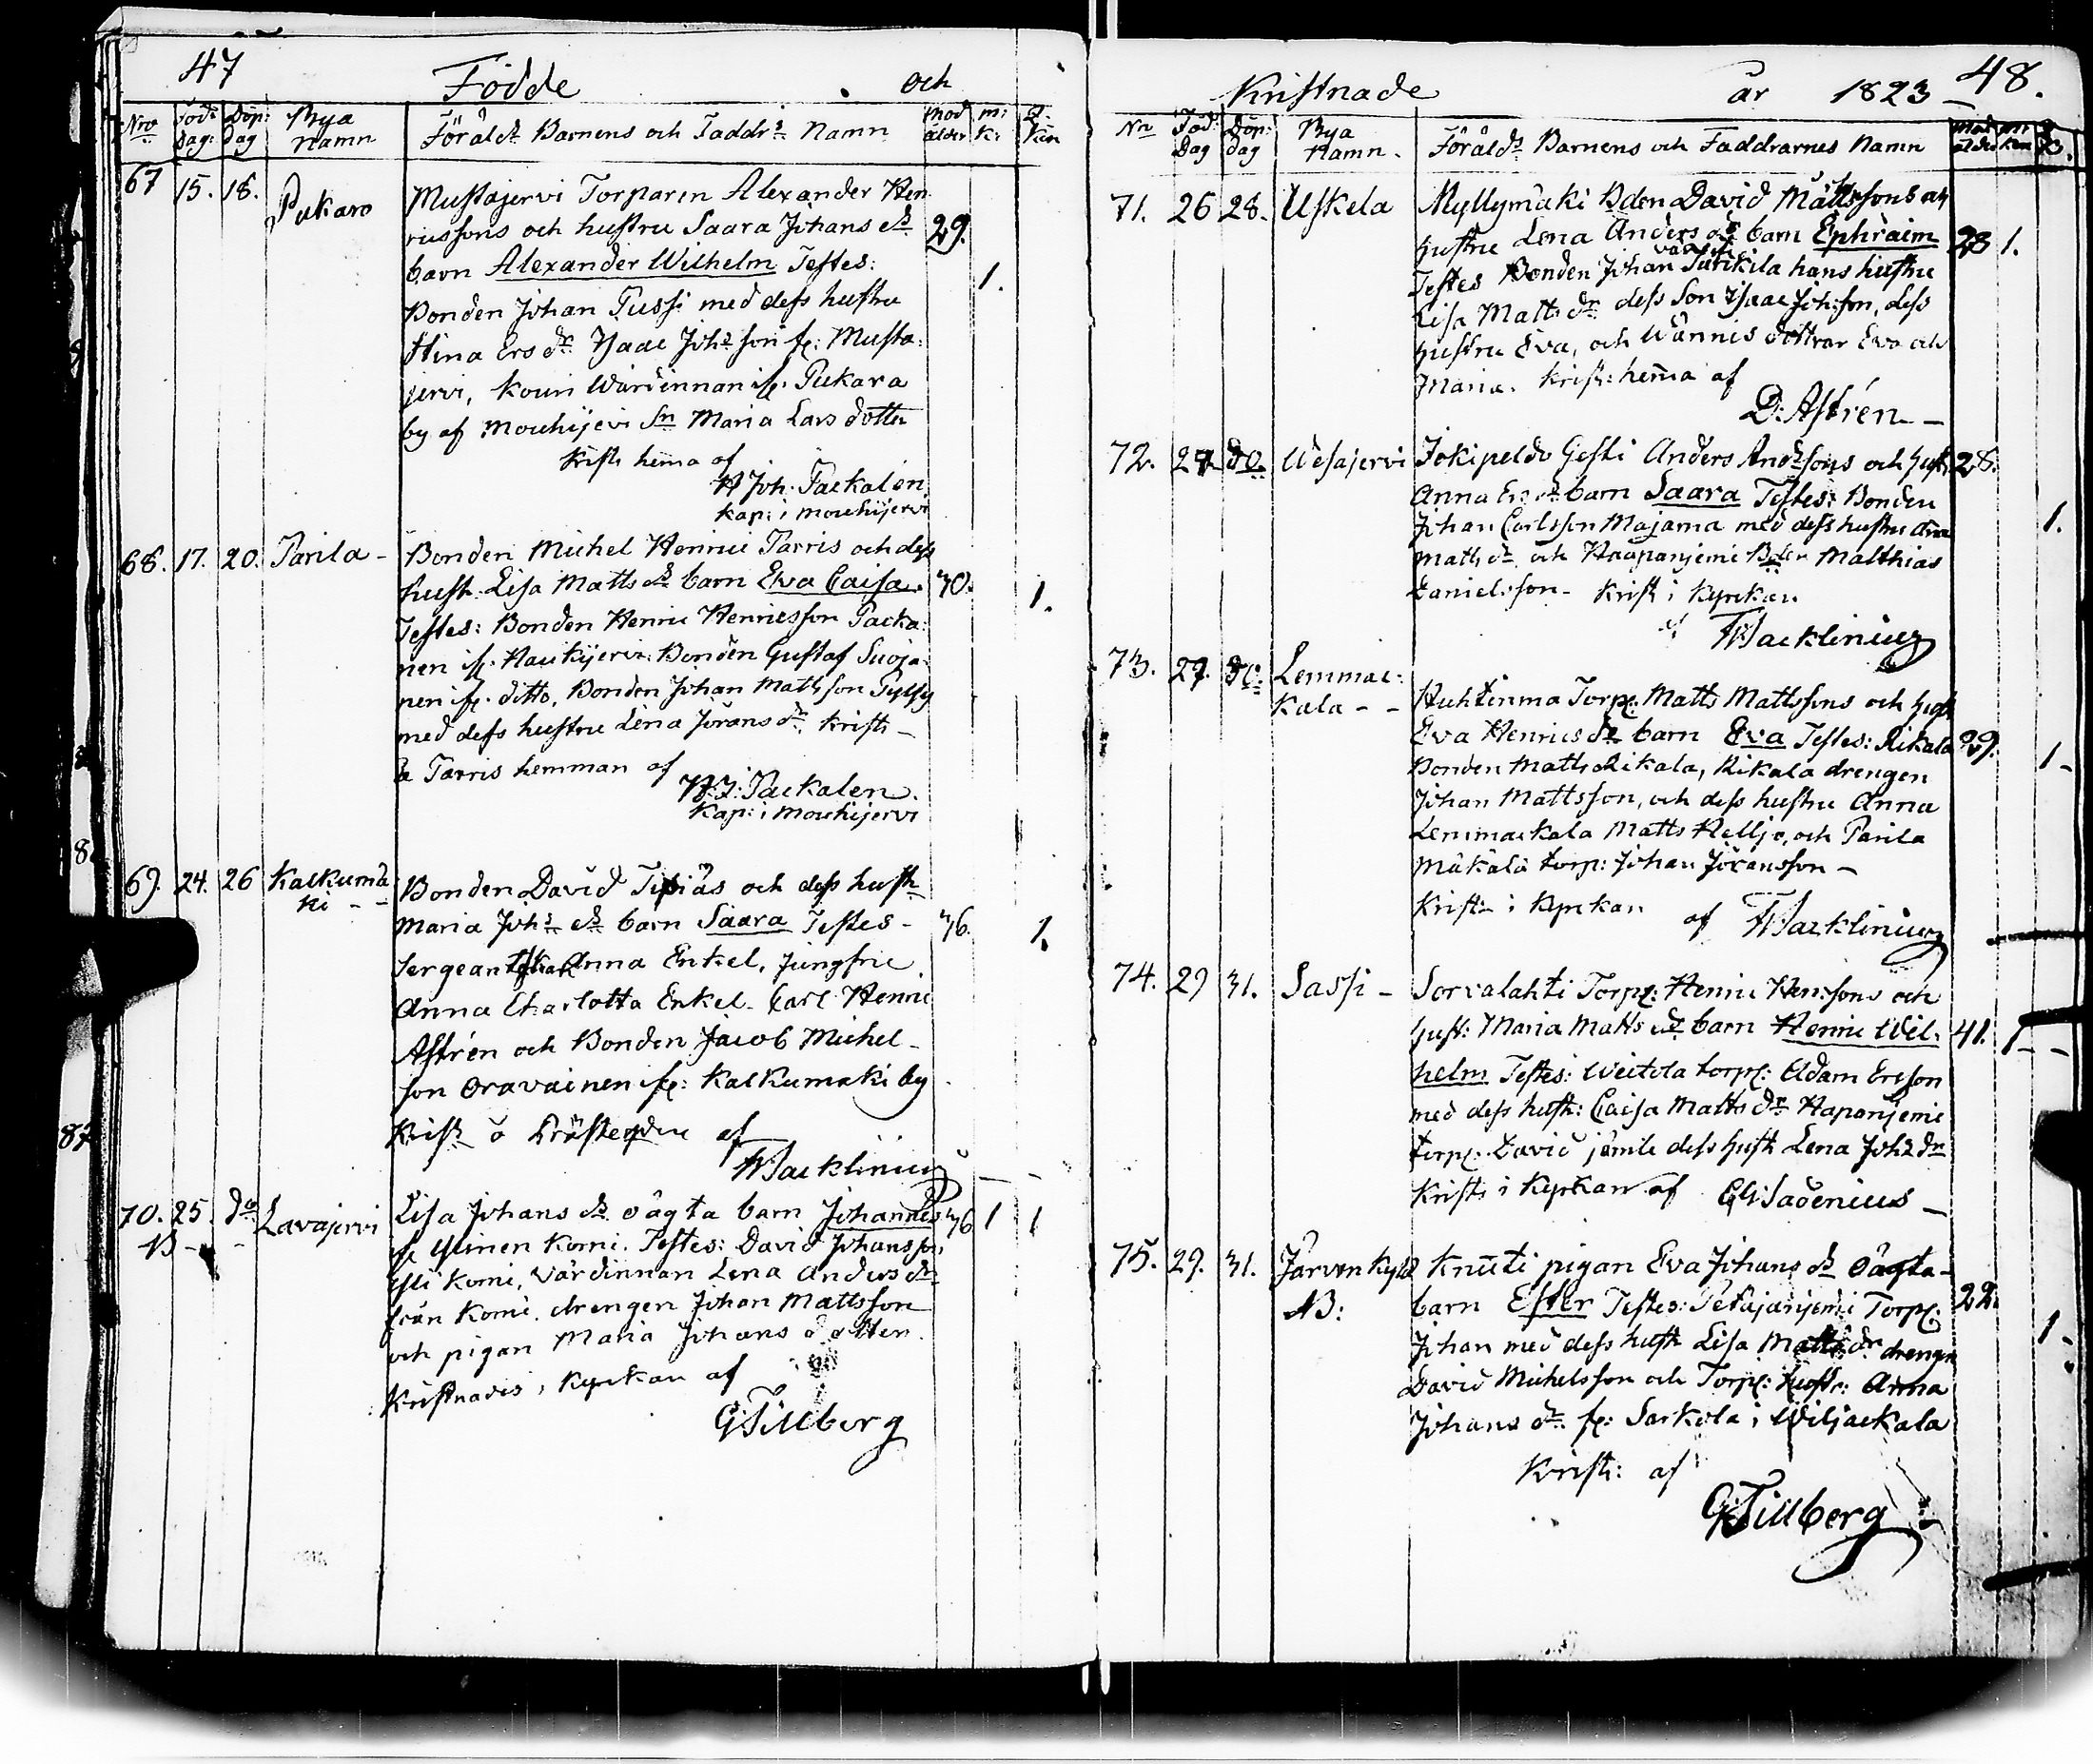 47
Födde och
Nro Föd: Dag: Döp: Dag Bya namn Föräld:s Barnens och Faddr:s Namn Mod ålder m: K: Q. Kön
67 15. 18. Pukaro Mustajervi Torparen Alexander Hen
ricssons och hustru Saara Johans dr 29.
barn Alexander Wilhelm Testes: 1.
Bonden Johan Pussi med dess hustru
Stina Ers dr Isaac Johs son fr: Musta:
jervi, Kouri Wärdinnan fr: Pukara
by af Mouhijervi Sn Maria Lars dotter
Krist: hema af
Joh: Packalen
Kap: i Mouhijervi
68. 17. 20. Parila - Bonden Michel Henric Parris och dess
hustr: Lisa Matts dr barn Eva Caisa. 40. 1.
Testes: Bonden Henric Henricsson Packa:
nen fr. Haukijervi. Bonden Gustaf Suoja:
nen fr. ditto, Bonden Johan Mattsson Pylsy
med dess hustru Lena Jörans dr. Krist: -
Parris hemman af
Packalen.
Kap: i Mouhijervi
69. 24. 26 Kalkumä
ki - - Bonden David och dess hustr
Maria Johs dr barn Saara Testes - 46. 1.
Sergeant Anna Enkel, Jungfru
Anna Charlotta Enkel. Carl Henric
Astrén och Bonden Jacob Michel-
son Oravainen fr: Kalkumaki by
Krist: Prästegden af
Wacklinius
70. 25. do Lavajervi Lisa Johans dr oägta barn Johannes 46 1 1
NB - fr Ylinen Komi. Testes: David Johansson
Yli Komi, Värdinnan Lena Anders dr
från Komi. drengen Johan Mattsson
och pigan Maria Johans dotter.
Kristnades i Kyrkan af
G:Tillberg
Kristnade år 1823 - 48.
Nr Föd: Dag Döp: dag Bya Namn. Föräld:s Barnens och Faddrarnes Namn Mod ålder Kön
71. 26 28. Uskela Myllymäki Bden David Mattssons
hustru Lena Anders dr barn Ephraim 23 1.
Testes Bonden Johan hans hustru
Lisa Matts dr dess Son Isaac Joh:son, dess
hustru Eva, och Wännes döttrar Eva och
Maria. Krist: hema af
D: Astrén -
72. 27. do. Wesajervi Jokipeldo Gesti Anders Andssons och hust: 28.
Anna Ers dr barn Saara Testes: Bonden
Johan Carlsson Majama med dess hustru Anna 1.
Matts dr och Haapaniemi Bden Matthias
Danielsson - Krist: i Kyrkan
af Wacklinius
73. 27. do: Lemmac:
kala - - Huhtinma Torp: Matts Mattssons och hust:
Eva Henrics dr barn Eva Testes: Rikala 29. 1 -
Bonden Matts Rikala, Rikala drengen
Johan Mattsson, och dess hustru Anna
Lemmackala Matts Heljo, och Parila
Mäkälä torp: Johan Jöransson -
Krist: i Kyrkan af Wacklinius
74. 29 31. Sassi - Sorvalahti Torp: Henric Henssons och
hust: Maria Matts dr barn Henric Wil: 41. 1 - -
helm Testes: Weitola torp: Adam Ersson
med dess hust: Caisa Matts dr Hapaniemi
torp: David jämte dess hust Lena Johs dr
Krist: i Kyrkan af Sadenius -
75. 29. 31. Järvenkylä Knuti pigan Eva Johans dr oägta -
NB: barn Ester Testes: Petäjäniemi Torp: 22.
Johan med dess hust Lisa Matts dr drengn 1 -
David Michelsson och Torp: hustr: Anna
Johans dr fr: Sarkola i Wiljackala
Krist: af
G:Tillberg
8
87